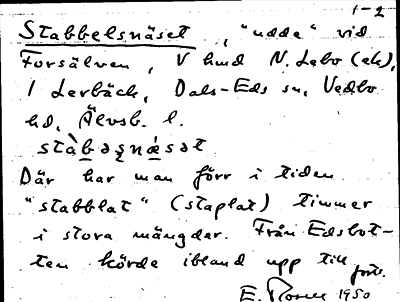 1-2
Stabbelsnäset, "udde" vid
Forsälven, V hmd N. Lebo (ek),
i Lerbäck, Dals-Eds sn, Vedbo
hd, Älvsb. l.
stàb̲əʂnæ̀sət
Där har man förr i tiden
"stabblat" (staplat) timmer
i stora mängder. Från Edsbot-
ten körde ibland upp till
forts.
E. 1950